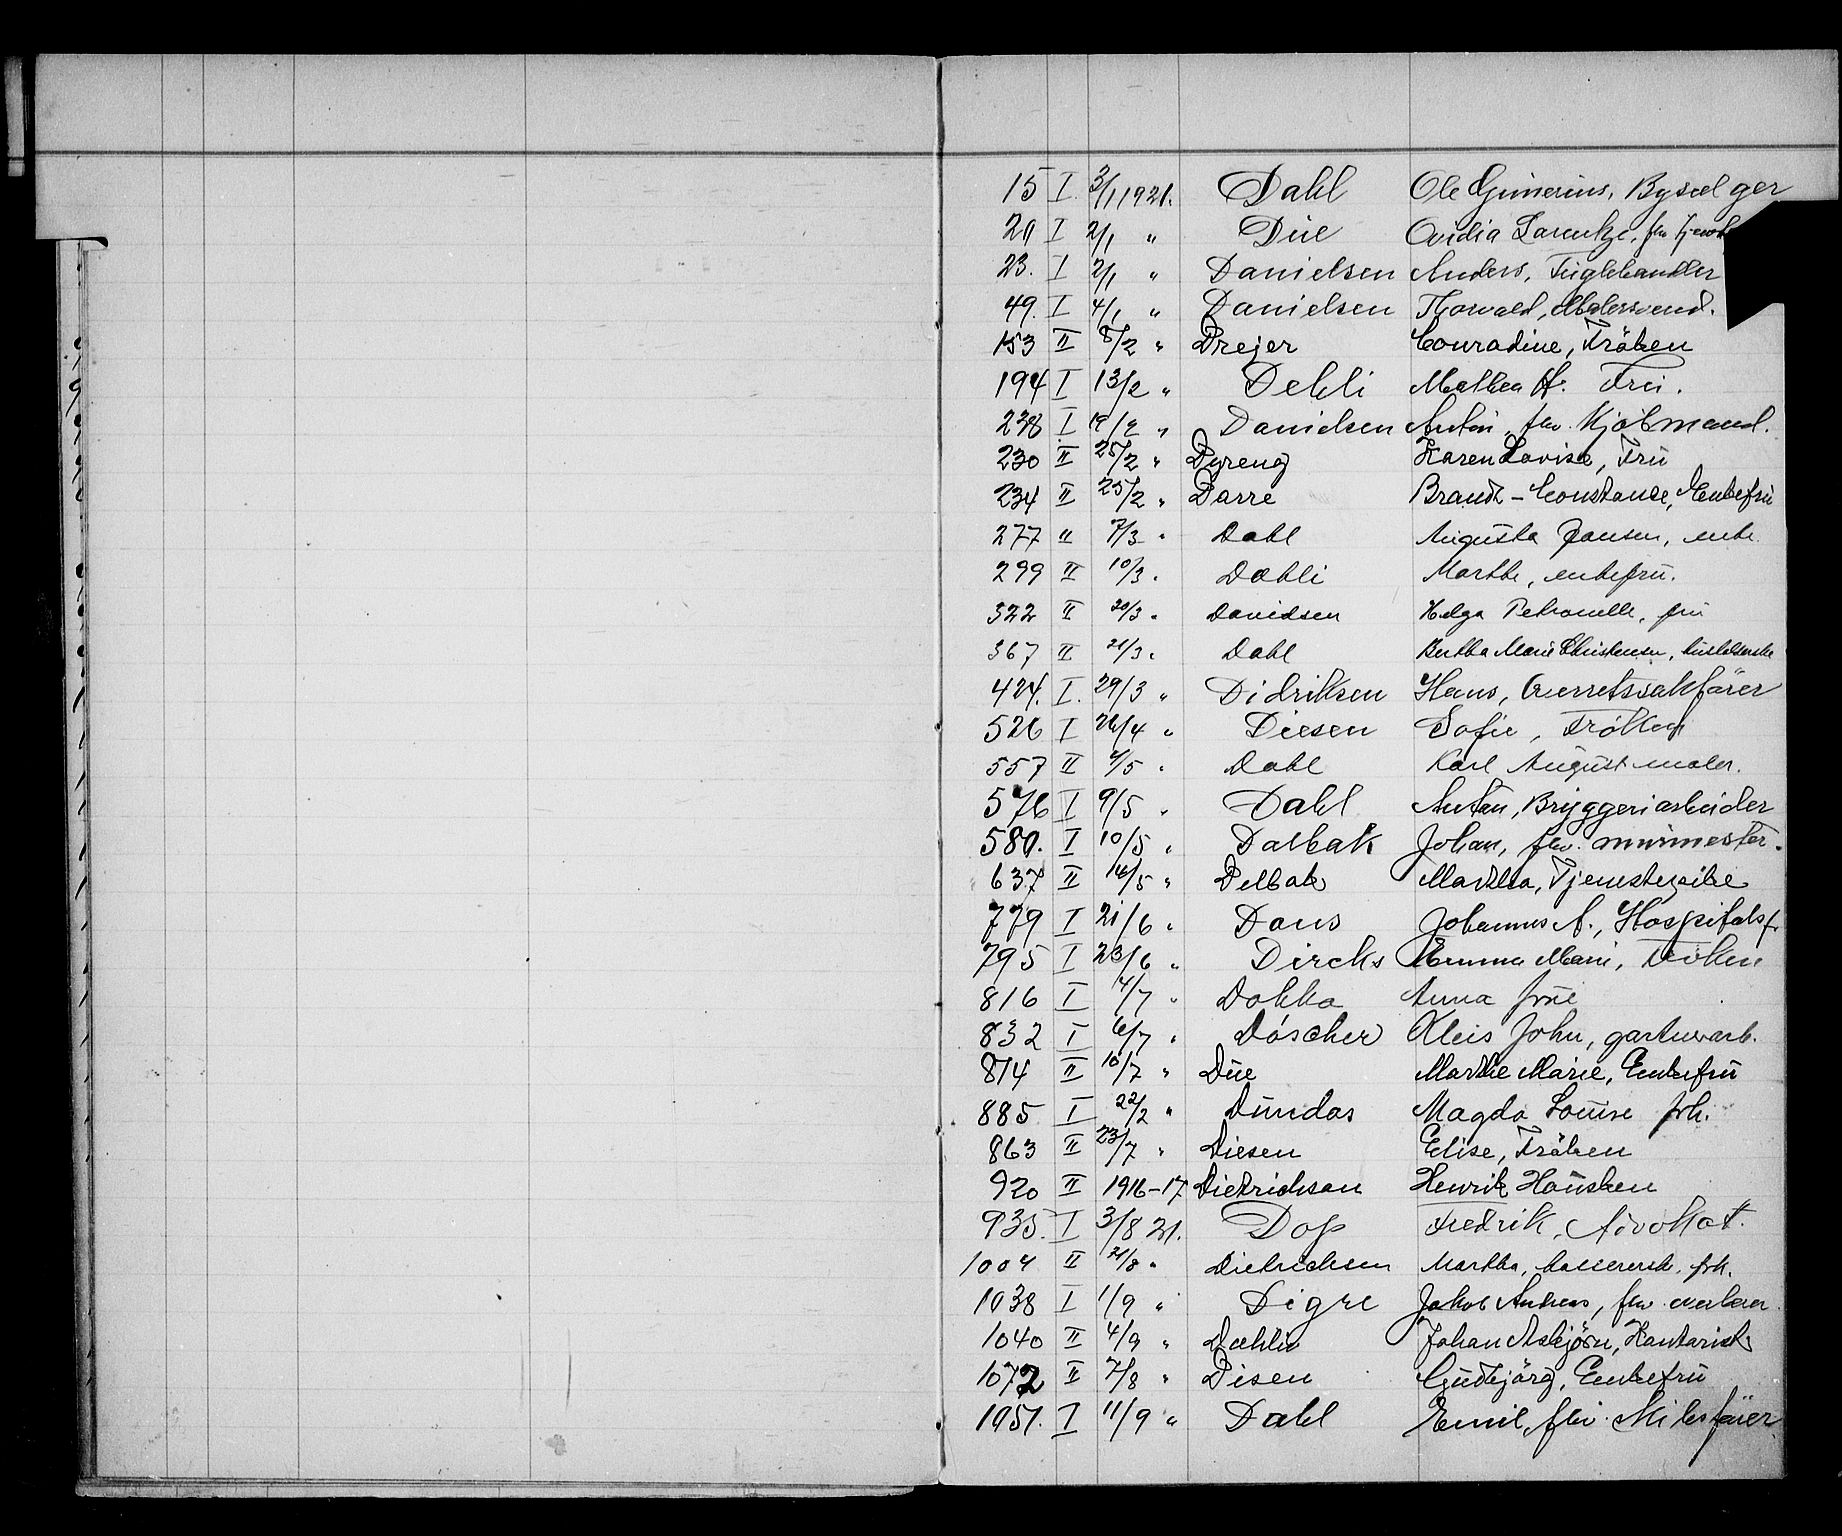 15 I. 3/1 1921. Dahl Ole Gunerius, Bysælger
20 I 2/1 " Due Ovidia Larentze, fhv.
23. I 2/1 " Danielsen Anders, Fuglehandler
49. I 4/1 " Danielsen Thorvald, Malersvend.
153 II 8/2 " Drejer Conradine, Fröken
194 I 13/2 " Dehli Mathea H. Fru.
238 I 19/2 " Danielsen Anton, fhv. Kjöbmand.
230 II 25/2 " Dyreng Karen Lovise, Fru
234 II 25/2 " Darre Brandt - Constance, Enkefru
277 " 7/3 " Dahl Augusta Jansen, enke
299 II 10/3 " Dahli Marthe, enkefru.
322 II 20/3 " Davidsen Helga Petronelle, fru
367 II 21/3 " Dahl Bertha Marie Christensen, husholderske
424. I. 29/3 " Didriksen Hans, Overretssakförer
526 I 26/4 " Diesen Sofie, Fröken
557 II 4/5 " Dahl Karl August maler.
576 I 9/5 " Dahl Anton, Bryggeriarbeider
580. I 10/5 " Dalbak Johan, fhv. murmester.
637 II 14/5 " Delbak Martha, Tjenestepike
779 I 21/6 " Dans Johannes A., Hospitalsf.
795 I 23/6 " Dircks Emma Marie, Fröken
816 I 4/7 " Dokka Anna frue
832 I 6/7 " Döscher Kleis John, gartnerarb.
814 II 10/7 " Due Marthe Marie, Enkefru
885 I 22/2 " Dundas Magda Louise frk.
863 II 23/7 " Diesen Elise, Fröken
920 II 1916-17 Dietrichson Henrik Housken
935. I 3/8 21. Dop Fredrik, Advokat.
1004 II 21/8 " Dietrichsen Martha, kassererske, frk.
1038 I 1/9 " Digre Jakob Andreas, fhv.
1040 II 4/9 " Dæhlie Johan Asbjörn, Kontorist
1072 II 7/8 " Disen Gudbjörg, Enkefru
1051. I 11/9 " Dahl Emil, fhv.